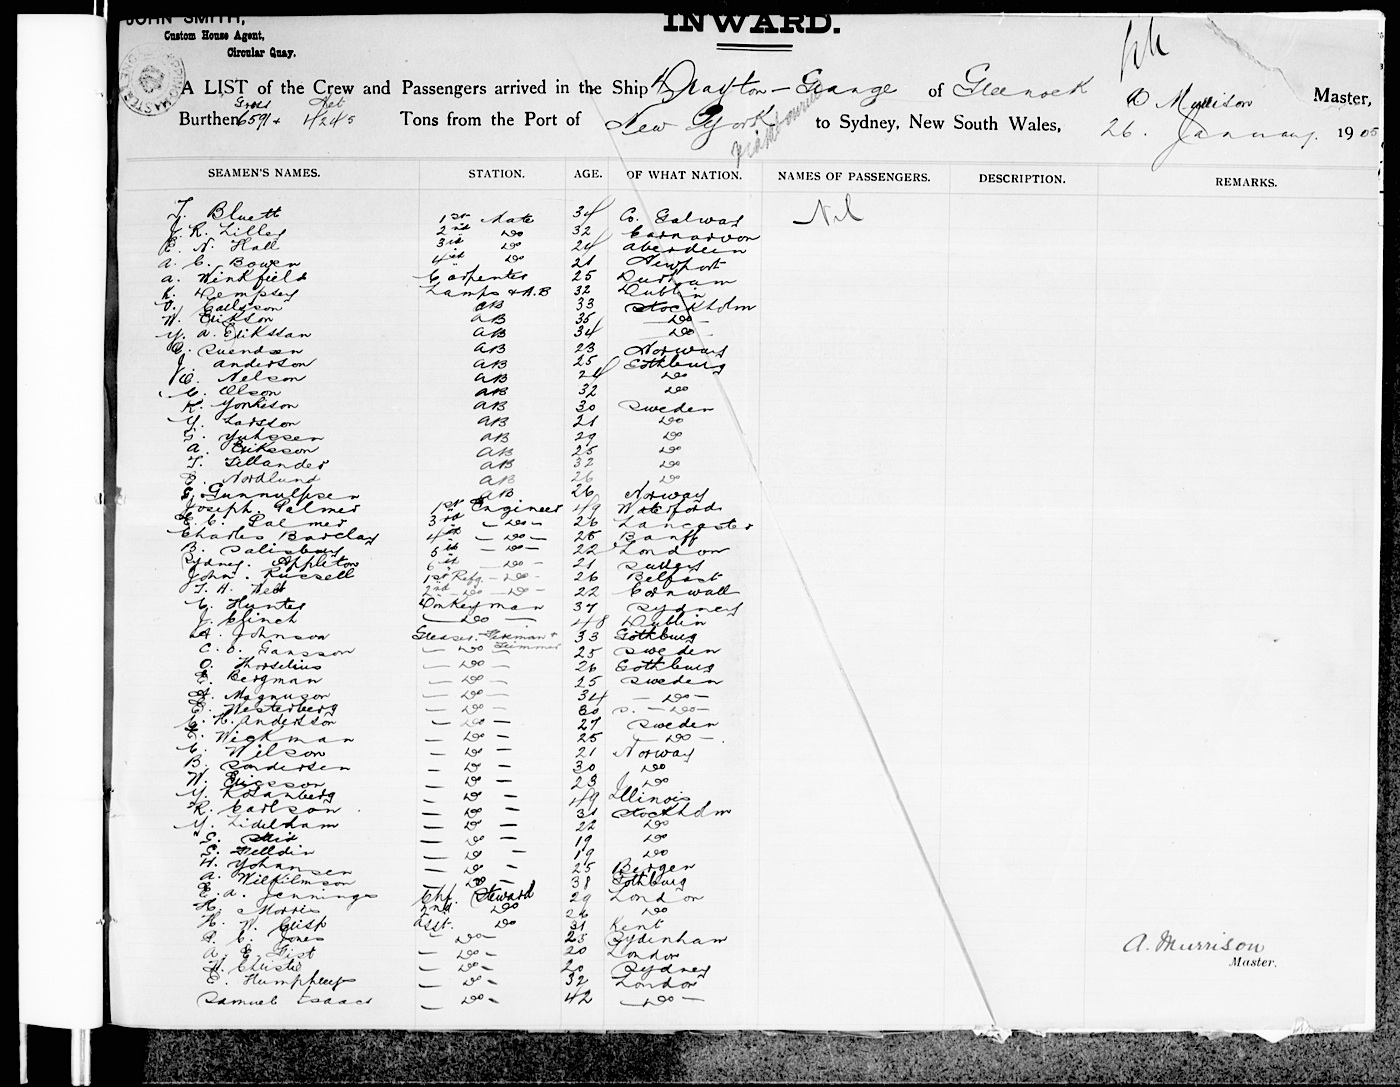 JOHN SMITH,
Custom House Agent,
Circular Quay.
INWARD.
A LIST of the Crew and Passengers arrived in the Ship Drayton - Grange of Greenock A Murrison Master,
Burthen Gross 6591 Net 4245 Tons from the Port of New York to Sydney, New South Wales, 26. January 1905
SEAMEN'S NAMES. STATION. AGE. OF WHAT NATION. NAMES OF PASSENGERS. DESCRIPTION. REMARKS.
T. Bluett 1st Mate 34 Co. Galway Nil
J. R. Lilley 2nd Do 32 Carnarvon
E. N. Hall 3rd Do 24 Aberdeen
A. C. Bowen 4th Do 21 Newport
A. Winkfield Carpenter 25 Durham
Dempsey Lamps & A.B 32 Dublin
AB 33 Stockholm
W. Erikson AB 35 Do
A. Erikssan AB 34 Do
Suendsen AB 23 Norway
J. Anderson AB 25 Gothburg
C. Nelson AB 24 Do
C. Olson AB 32 Do
K. AB 30 Sweden
Y. Larsson AB 21 Do
AB 29 Do
A. Eriksson AB 25 Do
T. Tillander AB 32 Do
E. Nordlund AB 26 Do
G. Gunnulfsen AB 26 Norway
Joseph. Palmer 1st Engineer 49 Waterford
E. C. Palmer 3rd - Do - 26 Lancaster
Charles Barclay 4th - Do - 25 Banff
B. Salisbury 5th - Do - 22 London
Sydney. Appleton 6th - Do - 21 Sydney
John. Russell 1st Refg. - Do - 26 Belfast
T. H. 2nd - Do - Do - 22 Cornwall
C. Hunter Donkeyman 37 Sydney
J. Clinch - Do - 48 Dublin
A. Johnson Greaser. Fireman & Trimmer 33 Gothburg
C. O. Gansson - Do - 25 Sweden
O. Thorselius - Do - 26 Gothburg
E. Bergman - Do - 25 Sweden
A. Magnuson - Do - 34 - Do -
G. Westerberg - Do - 30 S. - Do -
C. H. Anderson - Do - 27 Sweden
Wickman - Do - 25 - Do -
C. Wilson - Do - 21 Norway
B. Sandersen - Do - 30 Do
W. Ericsson - Do - 23 Do
Y. Rosanberg - Do - 49 Illinois
R. Carlson - Do - 31 Stockholm
Y. Lidelham - Do - 22 Do
G. - Do - 19 Do
G. - Do - 19 Do
H. Yohansen - Do - 25 Bergen
A. Wilfilmson - Do - 38 Gothburg
E. A. Jennings Chf. Steward 29 London
H. Morris 2nd Do 26 Do
H. W. Crisp Asst. Do 31 Kent
C. Jones - Do - 25 Sydenham
A. E. Gist - Do - 20 London
A. Christie - Do - 20 Sydney
E. Humphreys - Do - 32 London
Samuel Isaacs - Do - 42 - Do -
A. Murrison
Master.